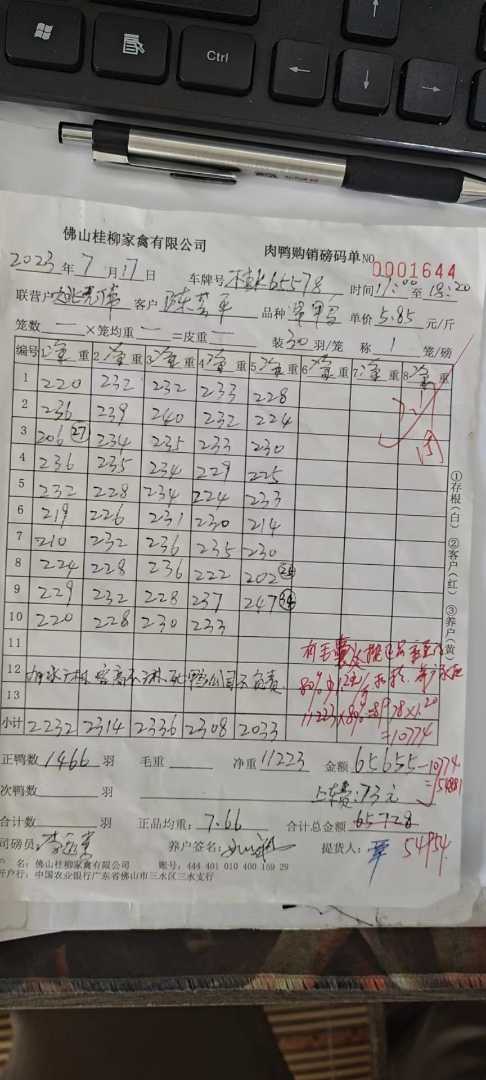 Ctrl
佛山桂柳家禽有限公司 肉鸭购销磅码单 NO 0001644
2023年7月17日 车牌号 65578 时间17:00至18:20
联营户 客户 陈 平 品种 单价5.85元/斤
笼数 一 ×笼均重 一 =皮重 一 装30羽/笼 称 1 笼/磅
编号 1净重 2净重 3净重 4净重 5净重 6净重 7净重 8净重
1 220 232 232 233 228
2 236 239 240 232 224
3 206 (27) 234 235 233 230
4 236 235 234 229 225
5 232 228 234 224 233
6 219 226 231 230 214
7 210 232 236 235 230
8 224 228 236 222 202
9 229 232 228 237 247
10 220 228 230 233
11
12
13
小计 2232 2314 2336 2308 2033
有毛
80%
11223×80%=8978×1.20
=10774
正鸭数1466羽 毛重 一 净重11223 金额65655-10774
=54881
次鸭数 羽 上车费:73元
合计数 羽 正品均重:7.66 合计总金额 65728
54954
司磅员: 养户签名: 提货人:
名:佛山桂柳家禽有限公司 账号:444 401 010 400 169 29
开户行:中国农业银行广东省佛山市三水区三水支行
①存根(白) ②客户(红) ③养户(黄